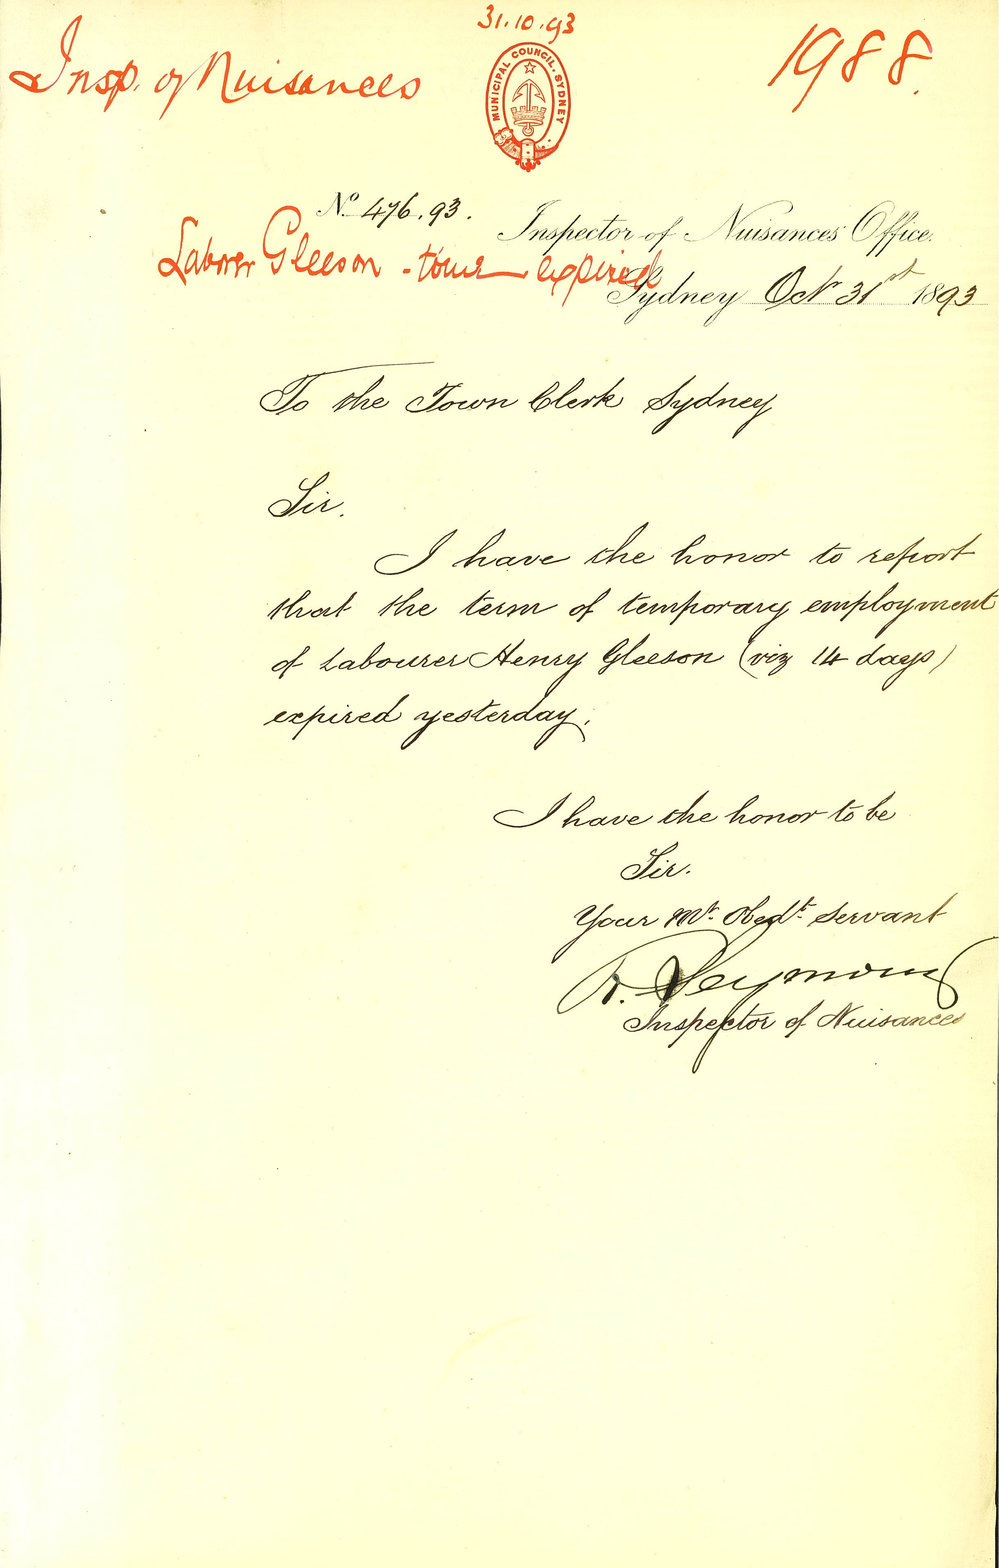 31.10.93
Insp. of Nuisances
1988.
MUNICIPAL COUNCIL. SYDNEY
No. 476.93.
Inspector of Nuisances' Office.
Laborer Gleeson - time expired
Sydney Oct 31st 1893
To the Town Clerk Sydney
Sir.
I have the honor to report
that the term of temporary employment
of Labourer Henry Gleeson (viz 14 days)
expired yesterday.
I have the honor to be
Sir.
Your Mt. Obedt. Servant
R. Seymour
Inspector of Nuisances